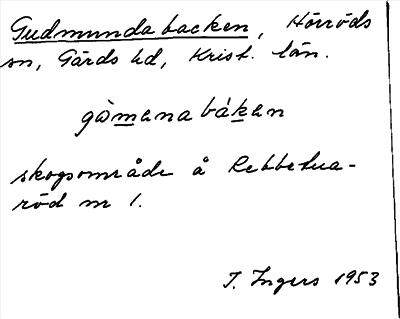 Gudmundabacken, Hörröds
sn, Gärds hd, Krist. län.
gòmanabákan
skogsområde å Rebbetua-
röd nr 1.
I. Ingers 1953